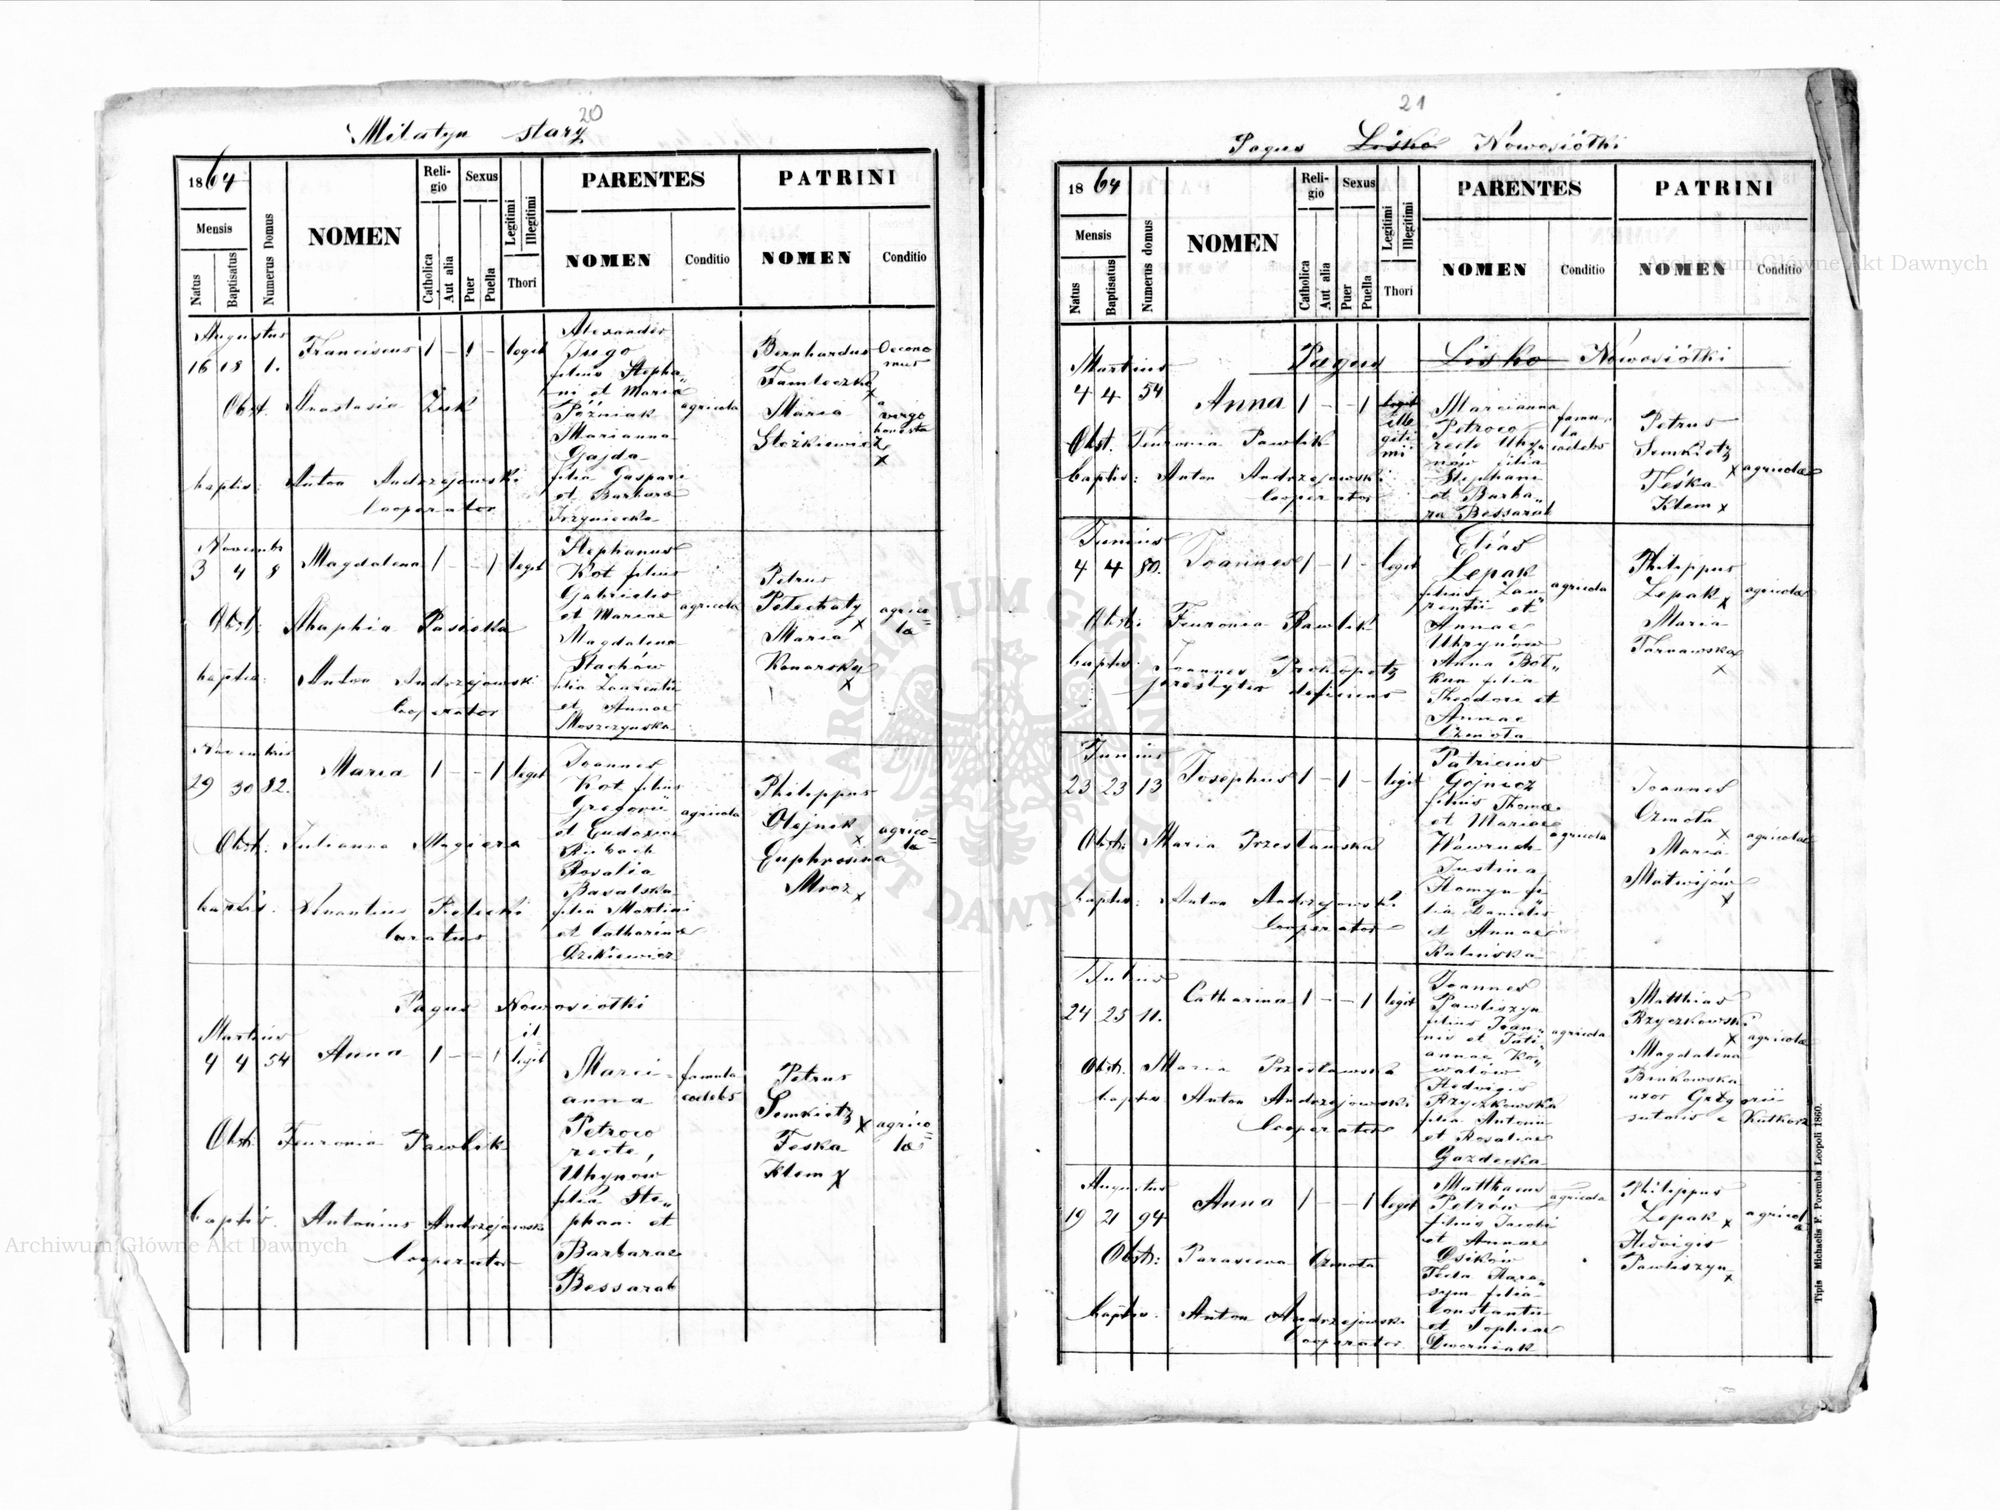 20
Milatyn stary
1864
Mensis
Natus
Baptisatus
Numerus Domus
NOMEN
Religio
Catholica
Aut alia
Sexus
Puer
Puella
Legitimi
Illegitimi
Thori
PARENTES
NOMEN
Conditio
PATRINI
NOMEN
Conditio
Augustus
16 18 1. Franciscus 1 – 1 – legit
Obst. Anastasia Żuk
baptis: Anton Andrzejowski
Cooperator
Alexander
Jugo
filius Stepha„
ni et Maria
Późniak
Marianna
Gajda
filia Gaspari
et Barbara
agricola
Bernhardus
Maria
Oecono
mus
virgo
honesta
x
Novembr
3 4 8 Magdalena 1 – – 1 legit
Obst: Pasieka
baptis: Anton Andrzejowski
Cooperator
Stephanus
Kot filius
Gabrielis
et Mariae
Magdalena
Stachów
filia Laurentii
et Annae
Moszczynska
agricola
Petrus
Petechaty
x
Maria
Konarska
x
agrico=
lae
Novembris
29 30 82. Maria 1 – – 1 legit
Obst: Julianna Magiera
baptis.
Curatus
Joannes
Kot filius
Gregorii
et Eudoxiae
Rosalia
filia Martini
et Catharina
agricola
Philippus
Olejnik
x
Euphrosina
Mroz
x
agrico=
lae
Pagus Nowosiołki
Martius
4 4 54 Anna 1 – – 1 il=
legit
Obst: Feuronia Pawlik
baptis. Antonius Andrzejowski
Cooperator
Mari=
anna
Petrow
recte,
Uhynow
filia Ste„
phani et
Barbarae
Bessarab
famula
coelebs
Petrus
Semkietz x
Feska
Klem x
agrico=
lae
21
Pagus Lisko Nowosiółki
1864
Mensis
Natus
Baptisatus
Numerus domus
NOMEN
Religio
Catholica
Aut alia
Sexus
Puer
Puella
Legitimi
Illegitimi
Thori
PARENTES
NOMEN
Conditio
PATRINI
NOMEN
Conditio
Pagus Lisko Nowosiółki
Martius
4 4 54 Anna 1 – – 1 legit
ille
giti
mi
Obst. Feuronia Pawlik
baptis: Anton Andrzejowski
Cooperator
Marianna
Petrow
recte Uhy
nów filia
Stephani
et Barba„
ra Bessarab
famu
la
coelebs
Petrus
Semkietz
x
Feska
Klem x
agricolae
Junius
4 4 80. Joannes 1 – 1 – legit
Obst: Feuronia Pawlik
baptis. Joannes Prokopetz
presbyter deficiens
Elias
Lepak
filius Lau„
rentii et
Annae
Uhrynów
Anna Bot„
kun filia
Theodori et
Annae
Czmota
agricola
Philippus
Lepak x
Maria
Tarnawska
x
agricolae
Junius
23 23 13 Josephus 1 – 1 – legit
Obst: Maria Przestawska
baptis: Anton Andrzejowski
Cooperator
Patricius
Gojnicz
filius Thomae
et Mariae
Justina
Homyn fi„
lia Danielis
et Annae
Kalinska
agricola
Joannes
Czmota
x
Maria
Matwijów
x
agricolae
Julius
24 25 11. Catharina 1 – – 1 legit
Obst. Maria Przestawska
baptis Anton Andrzejowski
Cooperator
Joannes
Pawliszyn
filius Joan„
nis et Tati„
annae Ko„
walów
Hedvigis
Rzyczkowska
filia Antonii
et Rosaliae
Gazdecka
agricola
Matthias
Rzyczkowski
x
Magdalena
Binkowska
uxor Grzgorii
sutoris e Kutkorz
agricolae
Augustus
19 21 94 Anna 1 – – 1 legit
Obst: Parasceva Czmota
baptis. Anton Andrzejowski
Cooperator
Matthaeus
Petrów
filius Jacobi
et Annae
Dzików
Tecla Hara„
sym filia
Constantii
et Sophiae
Dworniak
agricola
Philippus
Lepak x
Hedvigis
Pawliszyn
x
agricol
Tipis Michaelis F. Poremba Leopoli 1860.
ARCHIWUM GŁÓWNE AKT DAWNYCH
Archiwum Główne Akt Dawnych
Archiwum Główne Akt Dawnych